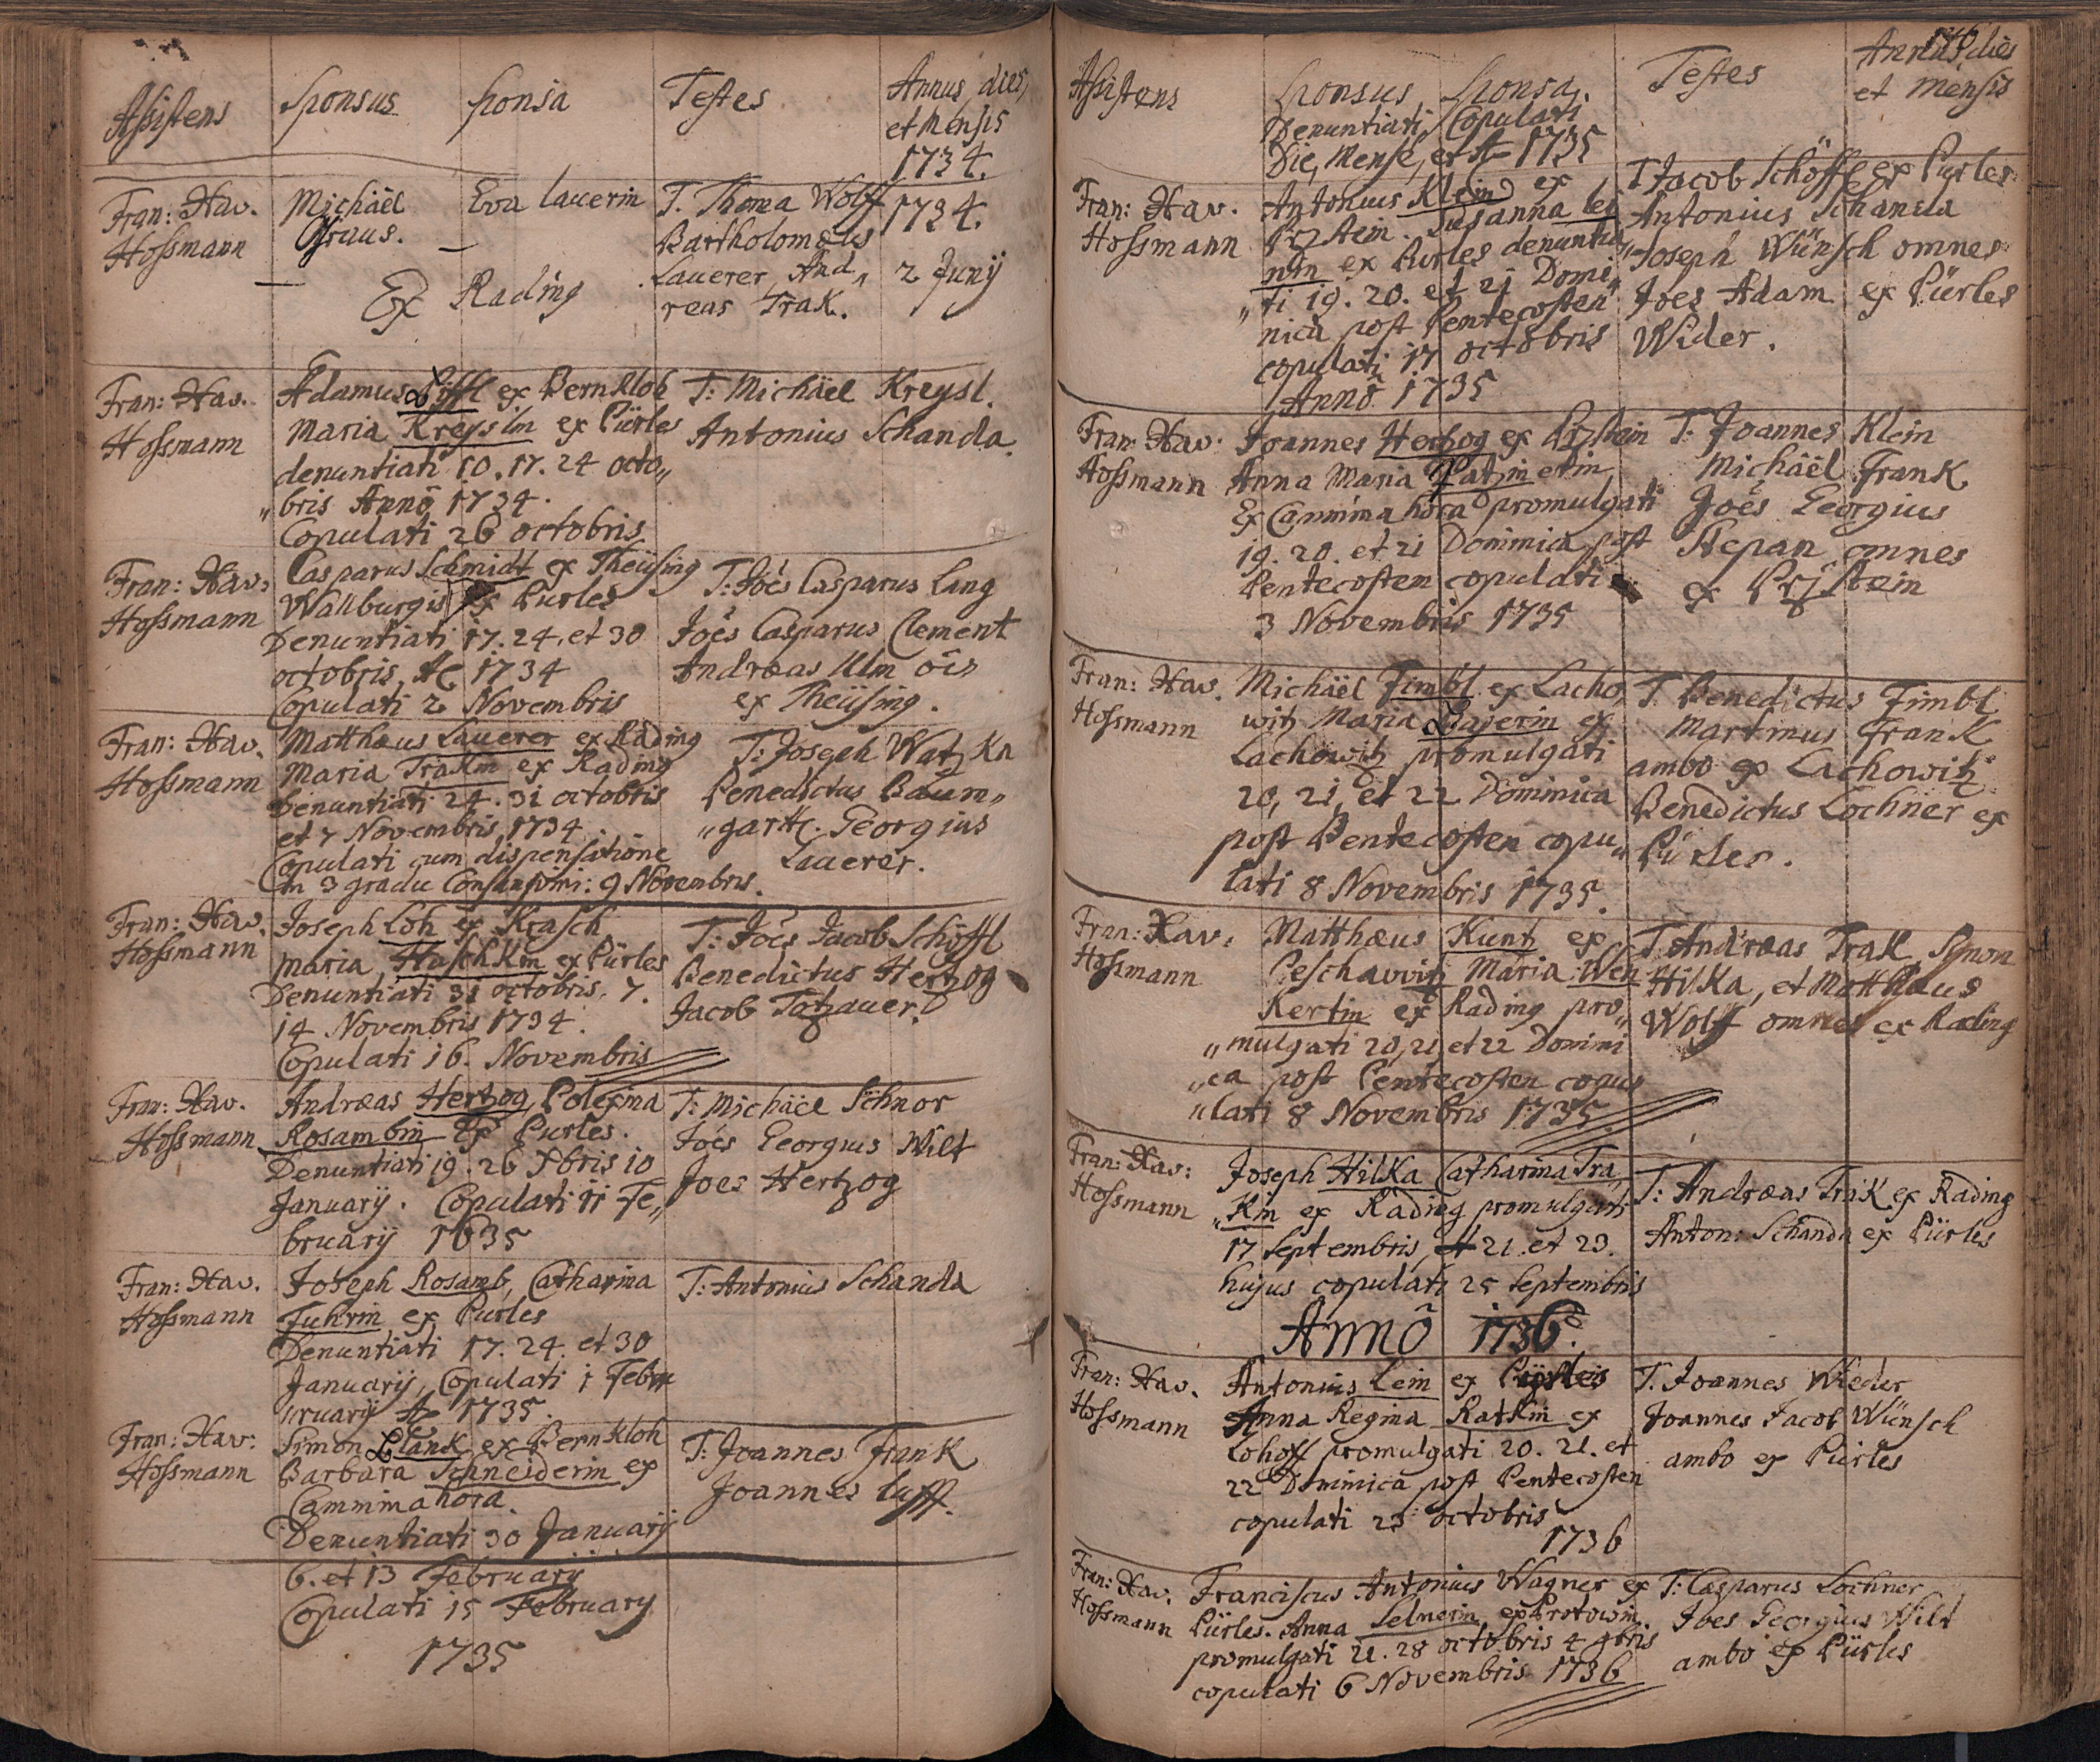 Assistens Sponsus Sponsa Testes Annus, dies,
et Mensis
1734.
Fran: Xav. Michäel Eva Lauerin T. Thoma Wolff 1734.
Hossmann Graus. Bartholomæus
Lauerer, And„ 2 Junij
Ex Rading reas Trak.
Fran: Xav. Adamus Löffl ex Bernkloh T: Michäel Kreysl.
Hossmann Maria Kreyslin ex Pürles Antonius Schanda.
denuntiati 10. 17. 24 octo„
„bris Anno 1734.
Copulati 26 octobris.
Fran: Xav. Casparus Schmidt ex Theüsing T: Joes Casparus Lang
Hossmann Wallburgis ex Purles
Denuntiati 17. 24. et 30 Joes Casparus Clement
octobris, Ao 1734 Andræas Ulm oes
Copulati 2 Novembris ex Theüsing.
Fran: Xav. Matthæus Lauerer ex Rading T: Joseph Watzka
Hossmann Maria Trakin ex Rading
Denuntiati 24. 31 octobris Benedictus Baum„
et 7 Novembris 1734 „gartl. Georgius
Copulati cum dispensatione Lauerer.
in 3 gradu Consangvini: 9 Novembris.
Fran: Xav. Joseph Loh ex Krasch T: Joes Jacob Schöffl
Hossmann Maria Haschkin ex Pürles Benedictus Hertzog
Denuntiati 31 octobris, 7. Jacob Totzauer.
14 Novembris 1734.
Copulati 16. Novembris
Fran: Xav. Andræas Hertzog, Polexina T: Michäel Schnor
Hossmann Rosambin Ex Purles. Joes Georgius Wilt
Denuntiati 19. 26 Xbris 10 Joes Hertzog
Januarij. Copulati 11 Fe„
bruarij 1635
Fran: Xav. Joseph Rosamb, Catharina T: Antonius Schanda
Hossmann Fuhrin ex Purles
Denuntiati 17. 24. et 30
Januarij, Copulati 1 Febr
uruarij Ao 1735.
Fran: Xav: Simon Blank ex Bernkloh T: Joannes Frank
Hossmann Barbara Schneiderin ex Joannes Luff.
Camminahora.
Denuntiati 30 Januarij
6. et 13 Februarij
Copulati 15 February
1735
Assistens Sponsus, Sponsa, Testes Annus dies
Denuntiati, Copulati et Mensis
Die, Mense, et Ao 1735
Fran: Xav. Antonius Klein ex T Jacob Schöffl ex Purles
Hossmann Susanna Lei Antonius Schanda
nin ex Purles denuntia „Joseph Wünsch omnes
„ti 19. 20. et 21 Domi„ Joes Adam ex Pürles
nica post Pentecosten Wider.
copulati 17 octobris
Anno 1735
Fran: Xav. Joannes Hertzog ex T: Joannes Klein
Hossmann Anna Maria Michäel Frank
Ex Camminahora promulgati Joes Georgius
19. 20. et 21 Dominica post Stepan omnes
Pentecosten copulati ex
3 Novembris 1735
Fran: Xav. Michäel Fimbl ex Lacho„ T. Benedictus Fimbl
Hossmann witz Maria Bayerin ex Martinus Frank
Lachowitz promulgati ambo ex Lachowitz
20, 21, et 22 Dominica Benedictus Lochner ex
post Pentecosten copu„ Pürles.
lati 8 Novembris 1735.
Fran: Xav. Matthæus Kuntz ex T. Andræas Trak, Simon
Hossmann Peschawitz Maria Wen Hilka, et Matthæus
Kertin ex Rading pro„ Wolff omnes ex Rading
„mulgati 20, 21, et 22 Domini
„ca post Pentecosten copu„
„lati 8 Novembris 1735.
Fran: Xav: Joseph Hilka Catharina Tra„ T: Andræas Trak ex Rading
Hossmann „kin ex Rading promulgati Anton: Schanda ex Pürles
17 Septembris, 21. et 23.
hujus copulati 25 Septembris
Anno 1736.
Fran: Xav. Antonius Lein ex T. Joannes Wieder
Hossmann Anna Regina Ratkin ex Joannes Jacob Wünsch
Lohoff promulgati 20. 21. et ambo ex Pürles
22 Dominica post Pentecosten
copulati 23 octobris
1736
Fran: Xav. Franciscus Antonius Wagner ex T: Casparus Lochner
Hossmann Pürles. Anna Selnerin ex Protowin Joes Georgius Wilt
promulgati 21. 28 octobris 4 9bris ambo ex Pürles
copulati 6 Novembris 1736